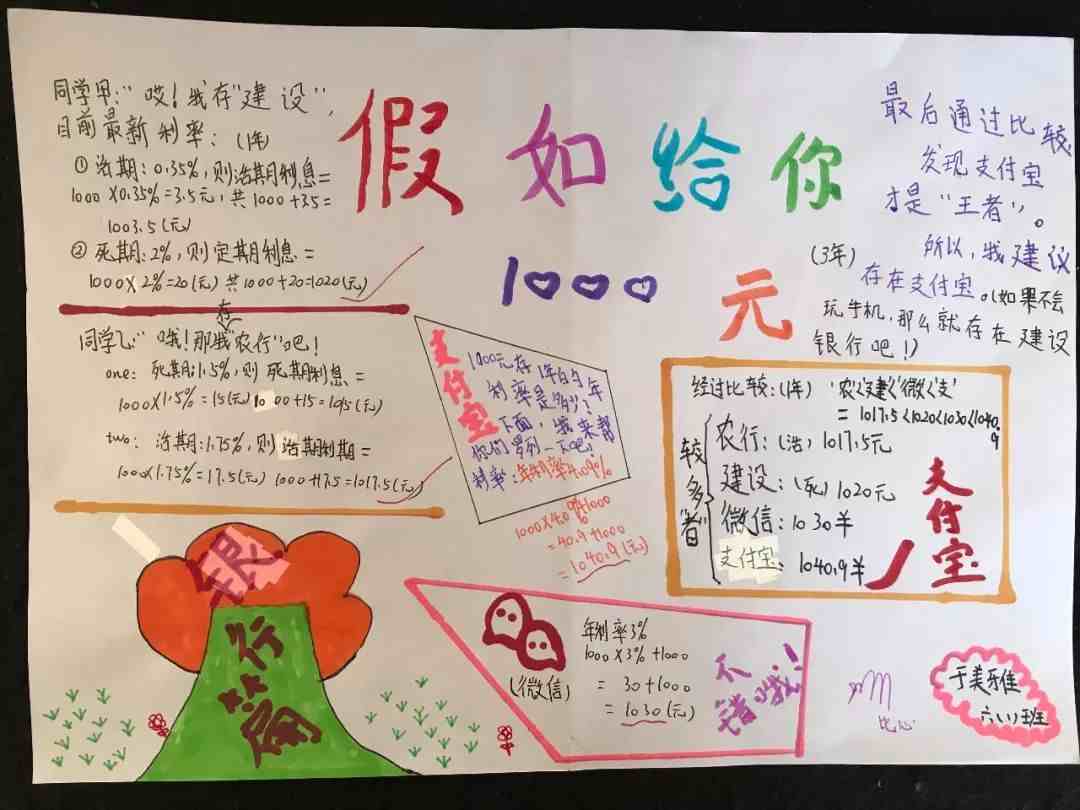 假如给你
1000元
同学甲:“哎!我存“建设”,
目前最新利率:(1年)
①活期:0.35%,则活期利息=
1000×0.35%=3.5元,共1000+35=
1003.5(元)
②死期:2%,则定期利息=
1000×2%=20(元)共1000+20=1020(元)
同学乙:“哦!那我存“农行”吧!
one:死期:1.5%,则死期利息=
1000×1.5%=15(元)1000+15=1015(元)
two:活期:1.75%,则活期利期=
1000×1.75%=17.5(元)1000+17.5=1017.5(元)
银
行
篇
支付宝
1000元存1年的今年
利率是多少?
下面,我来帮
你们罗列一下吧!
利率:年利率4.09%
1000×4.09%+1000
=40.9+1000
=1040.9(元)
(微信)
年利率3%
1000×3%+1000
=30+1000
=1030(元)
不错哦!
最后通过比较,
发现支付宝
才是“王者”。
(3年)所以,我建议
存在支付宝。(如果不会
玩手机,那么就存在建设
银行吧!)
经过比较:(1年)“农<建<微<支”
=1017.5<1020<1030<1040.9
较多“者”
农行:(活)1017.5元
建设:(死)1020元
微信:1030羊
支付宝:1040.9羊
支付宝
比心
于美雅
六(1)班